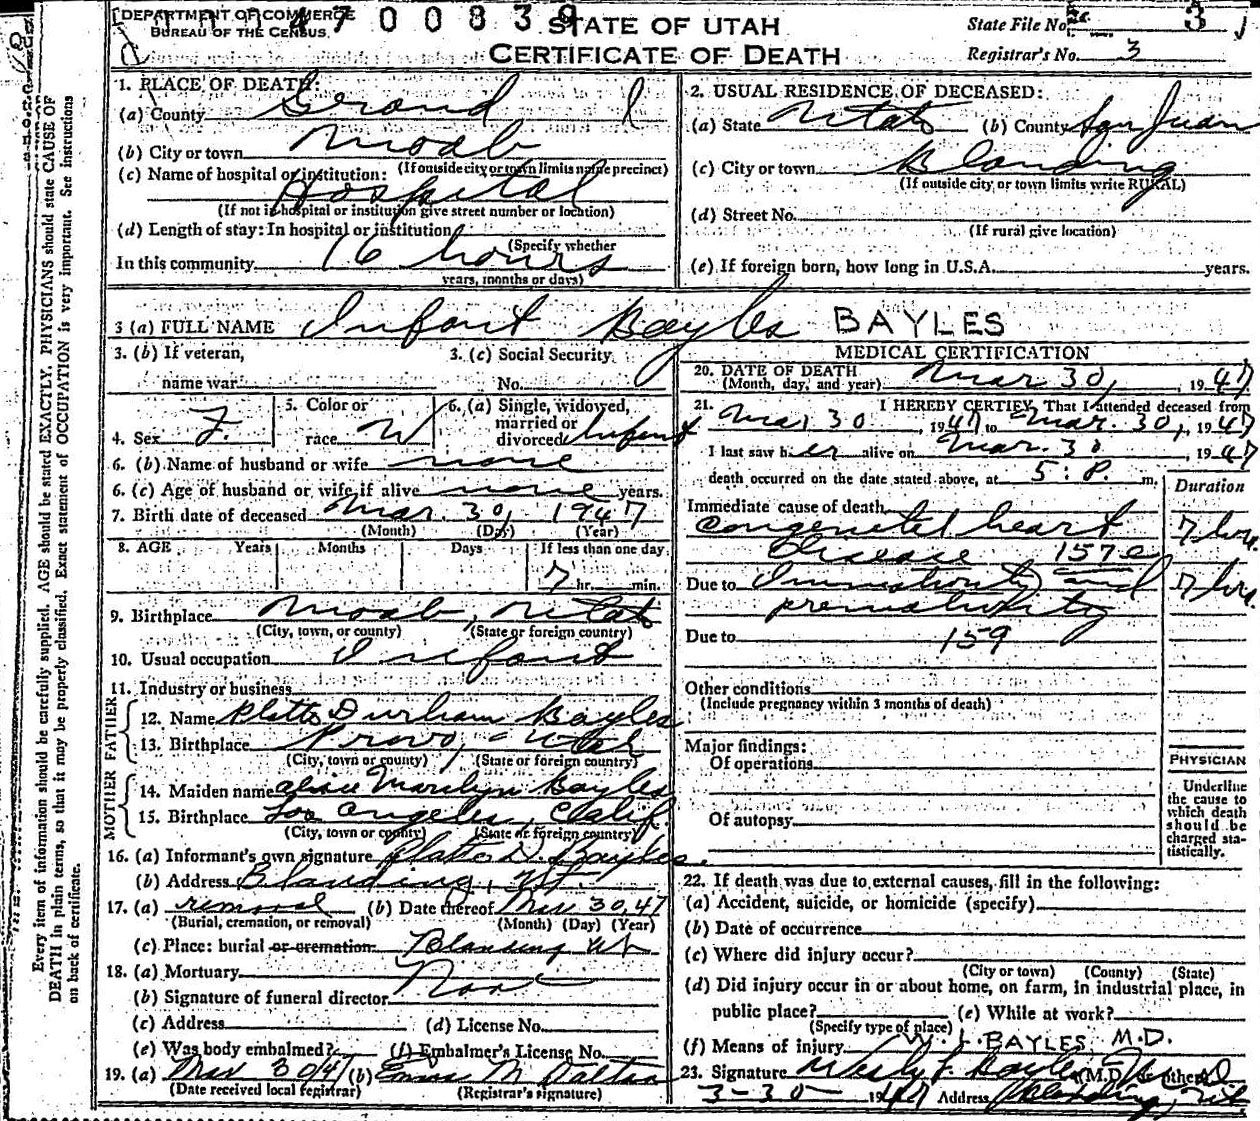 DEPARTMENT OF COMMERCE
BUREAU OF THE CENSUS
4 7 0 0 8 3 9
STATE OF UTAH
CERTIFICATE OF DEATH
State File No. 3
Registrar's No. 3
Every item of information should be carefully supplied. AGE should be stated EXACTLY. PHYSICIANS should state CAUSE OF
DEATH in plain terms, so that it may be properly classified. Exact statement of OCCUPATION is very important. See instructions
on back of certificate.
1. PLACE OF DEATH:
(a) County Grand
(b) City or town Moab
(If outside city or town limits name precinct)
(c) Name of hospital or institution:
Hospital
(If not in hospital or institution give street number or location)
(d) Length of stay: In hospital or institution
(Specify whether
In this community 16 hours
years, months or days)
2. USUAL RESIDENCE OF DECEASED:
(a) State Utah (b) County San Juan
(c) City or town Blanding
(If outside city or town limits write RURAL)
(d) Street No.
(If rural give location)
(e) If foreign born, how long in U.S.A. years.
3 (a) FULL NAME Infant Bayles BAYLES
3. (b) If veteran,
name war
3. (c) Social Security
No.
4. Sex F.
5. Color or
race W
6. (a) Single, widowed,
married or
divorced Infant
6. (b) Name of husband or wife none
6. (c) Age of husband or wife if alive none years.
7. Birth date of deceased Mar. 30, 1947
(Month) (Day) (Year)
8. AGE Years Months Days If less than one day
7 hr. min.
9. Birthplace Moab, Utah
(City, town, or county) (State or foreign country)
10. Usual occupation Infant
11. Industry or business
FATHER
12. Name Platte Durham Bayles
13. Birthplace Provo, Utah
(City, town or county) (State or foreign country)
MOTHER
14. Maiden name Marilyn Bayles
15. Birthplace Los Angeles, Calif.
(City, town or county) (State or foreign country)
16. (a) Informant's own signature Platte D. Bayles.
(b) Address Blanding, Ut.
17. (a) removal (b) Date thereof Mar 30, 47
(Burial, cremation, or removal) (Month) (Day) (Year)
(c) Place: burial or cremation Blanding Ut
18. (a) Mortuary
(b) Signature of funeral director
(c) Address (d) License No.
(e) Was body embalmed? (f) Embalmer's License No.
19. (a) Mar 30/47 (b) M. Dalton
(Date received local registrar) (Registrar's signature)
MEDICAL CERTIFICATION
20. DATE OF DEATH
(Month, day, and year) Mar 30, 1947
21. I HEREBY CERTIFY, That I attended deceased from
Mar 30, 1947 to Mar. 30, 1947
I last saw her alive on Mar. 30 1947
death occurred on the date stated above, at 5:P. m.
Duration
Immediate cause of death
congenital heart 7 hrs.
disease 157e
Due to Immaturity and 7 hrs.
prematurity
Due to 159
Other conditions
(Include pregnancy within 3 months of death)
Major findings:
Of operations
Of autopsy
PHYSICIAN
Underline
the cause to
which death
should be
charged sta-
tistically.
22. If death was due to external causes, fill in the following:
(a) Accident, suicide, or homicide (specify)
(b) Date of occurrence
(c) Where did injury occur?
(City or town) (County) (State)
(d) Did injury occur in or about home, on farm, in industrial place, in
public place? (e) While at work?
(Specify type of place)
(f) Means of injury
W. L. BAYLES M.D.
23. Signature L. Bayles (M.D. or other)
3-30- 1947 Address Blanding, Ut.